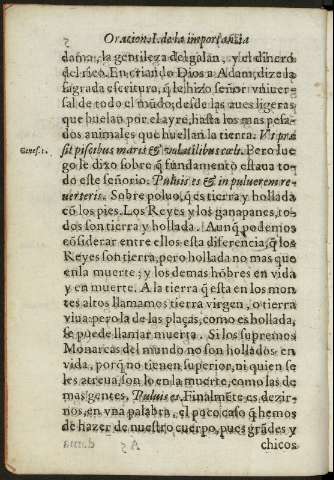 Oracion I. de la importancia
dama, la gentileza del galan, y el dinero
del rico. En criando Dios a Adam, dize la
sagrada escritura, q̃ le hizo señor vniuer-
sal de todo el mũdo; desde las aues ligeras
que buelan por el ayre, hasta los mas pesa-
dos animales que huellan la tierra. Vt præ
Genes. 1.
sit piscibus maris & volatilibus cœli. Pero lue
go le dixo sobre q̃ fundamento estaua to-
do este señorio. Puluis es & in puluerem re-
uerteris. Sobre poluo, q̃ es tierra y hollada
cõ los pies. Los Reyes y los ganapanes, to-
dos son tierra y hollada. Aunq̃ podemos
cõsiderar entre ellos esta diferencia, q̃ los
Reyes son tierra, pero hollada no mas que
en la muerte; y los demas hõbres en vida
y en muerte. A la tierra q̃ esta en los mon
tes altos llamamos tierra virgen, o tierra
viua: pero la de las plaças, como es hollada,
se puede llamar muerta. Si los supremos
Monarcas del mundo no son hollados en
vida, porq̃ no tienen superior, ni quien se
les atreua, son lo en la muerte, como las de
mas gentes, Puluis es. Finalmẽte es dezir-
nos, en vna palabra, el poco caso q̃ hemos
de hazer de nuestro cuerpo, pues grãdes y
chicos